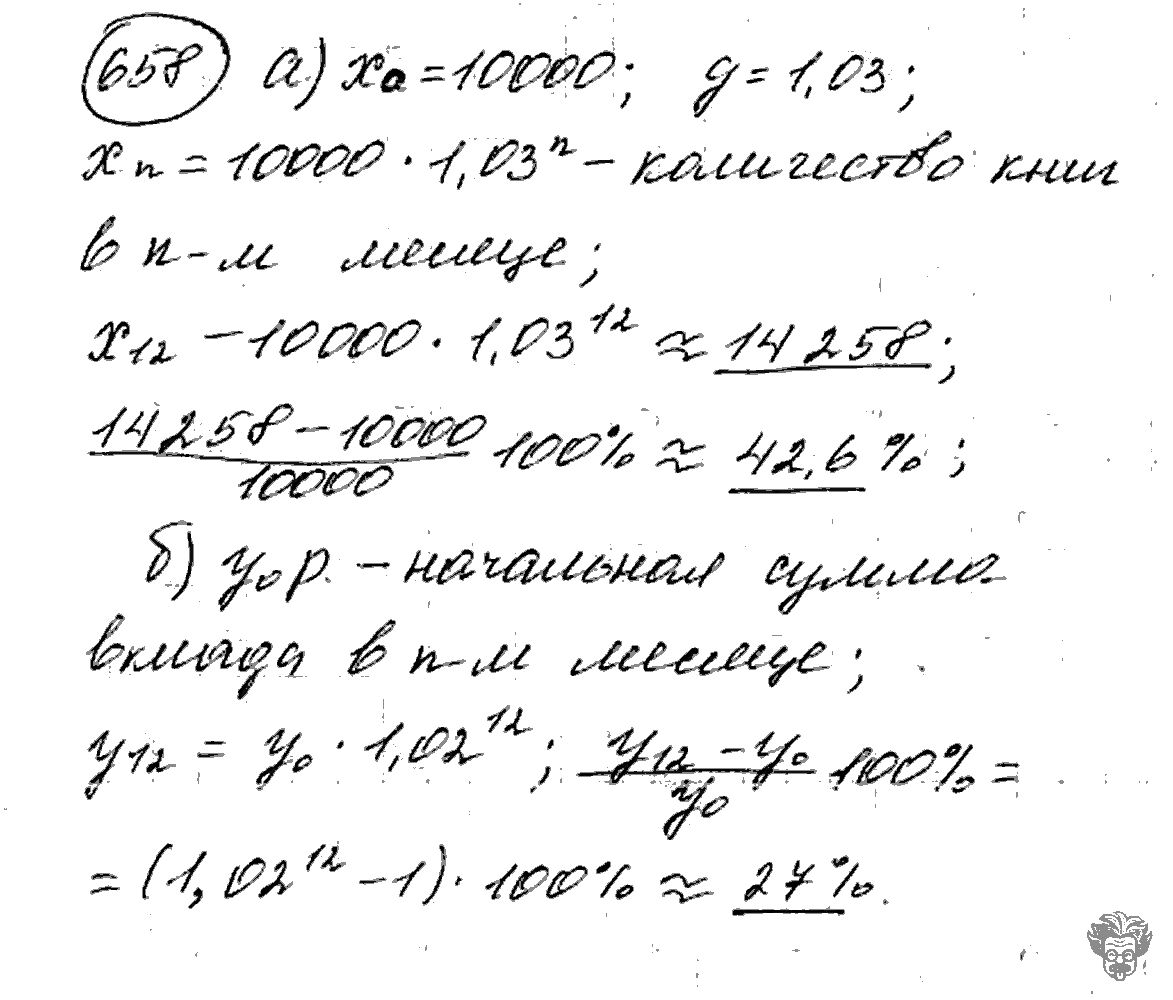 658 а) x₀ = 10000; g = 1,03;
xₙ = 10000 · 1,03ⁿ – количество книг
в n-м месяце;
x₁₂ – 10000 · 1,03¹² ≈ 14 258;
14 258 – 10000 / 10000 100% ≈ 42,6 %;
б) y₀ р. – начальная сумма
вклада в n-м месяце;
y₁₂ = y₀ · 1,02¹²; y₁₂ – y₀ / y₀ 100% =
= (1,02¹² – 1) · 100% ≈ 27%.